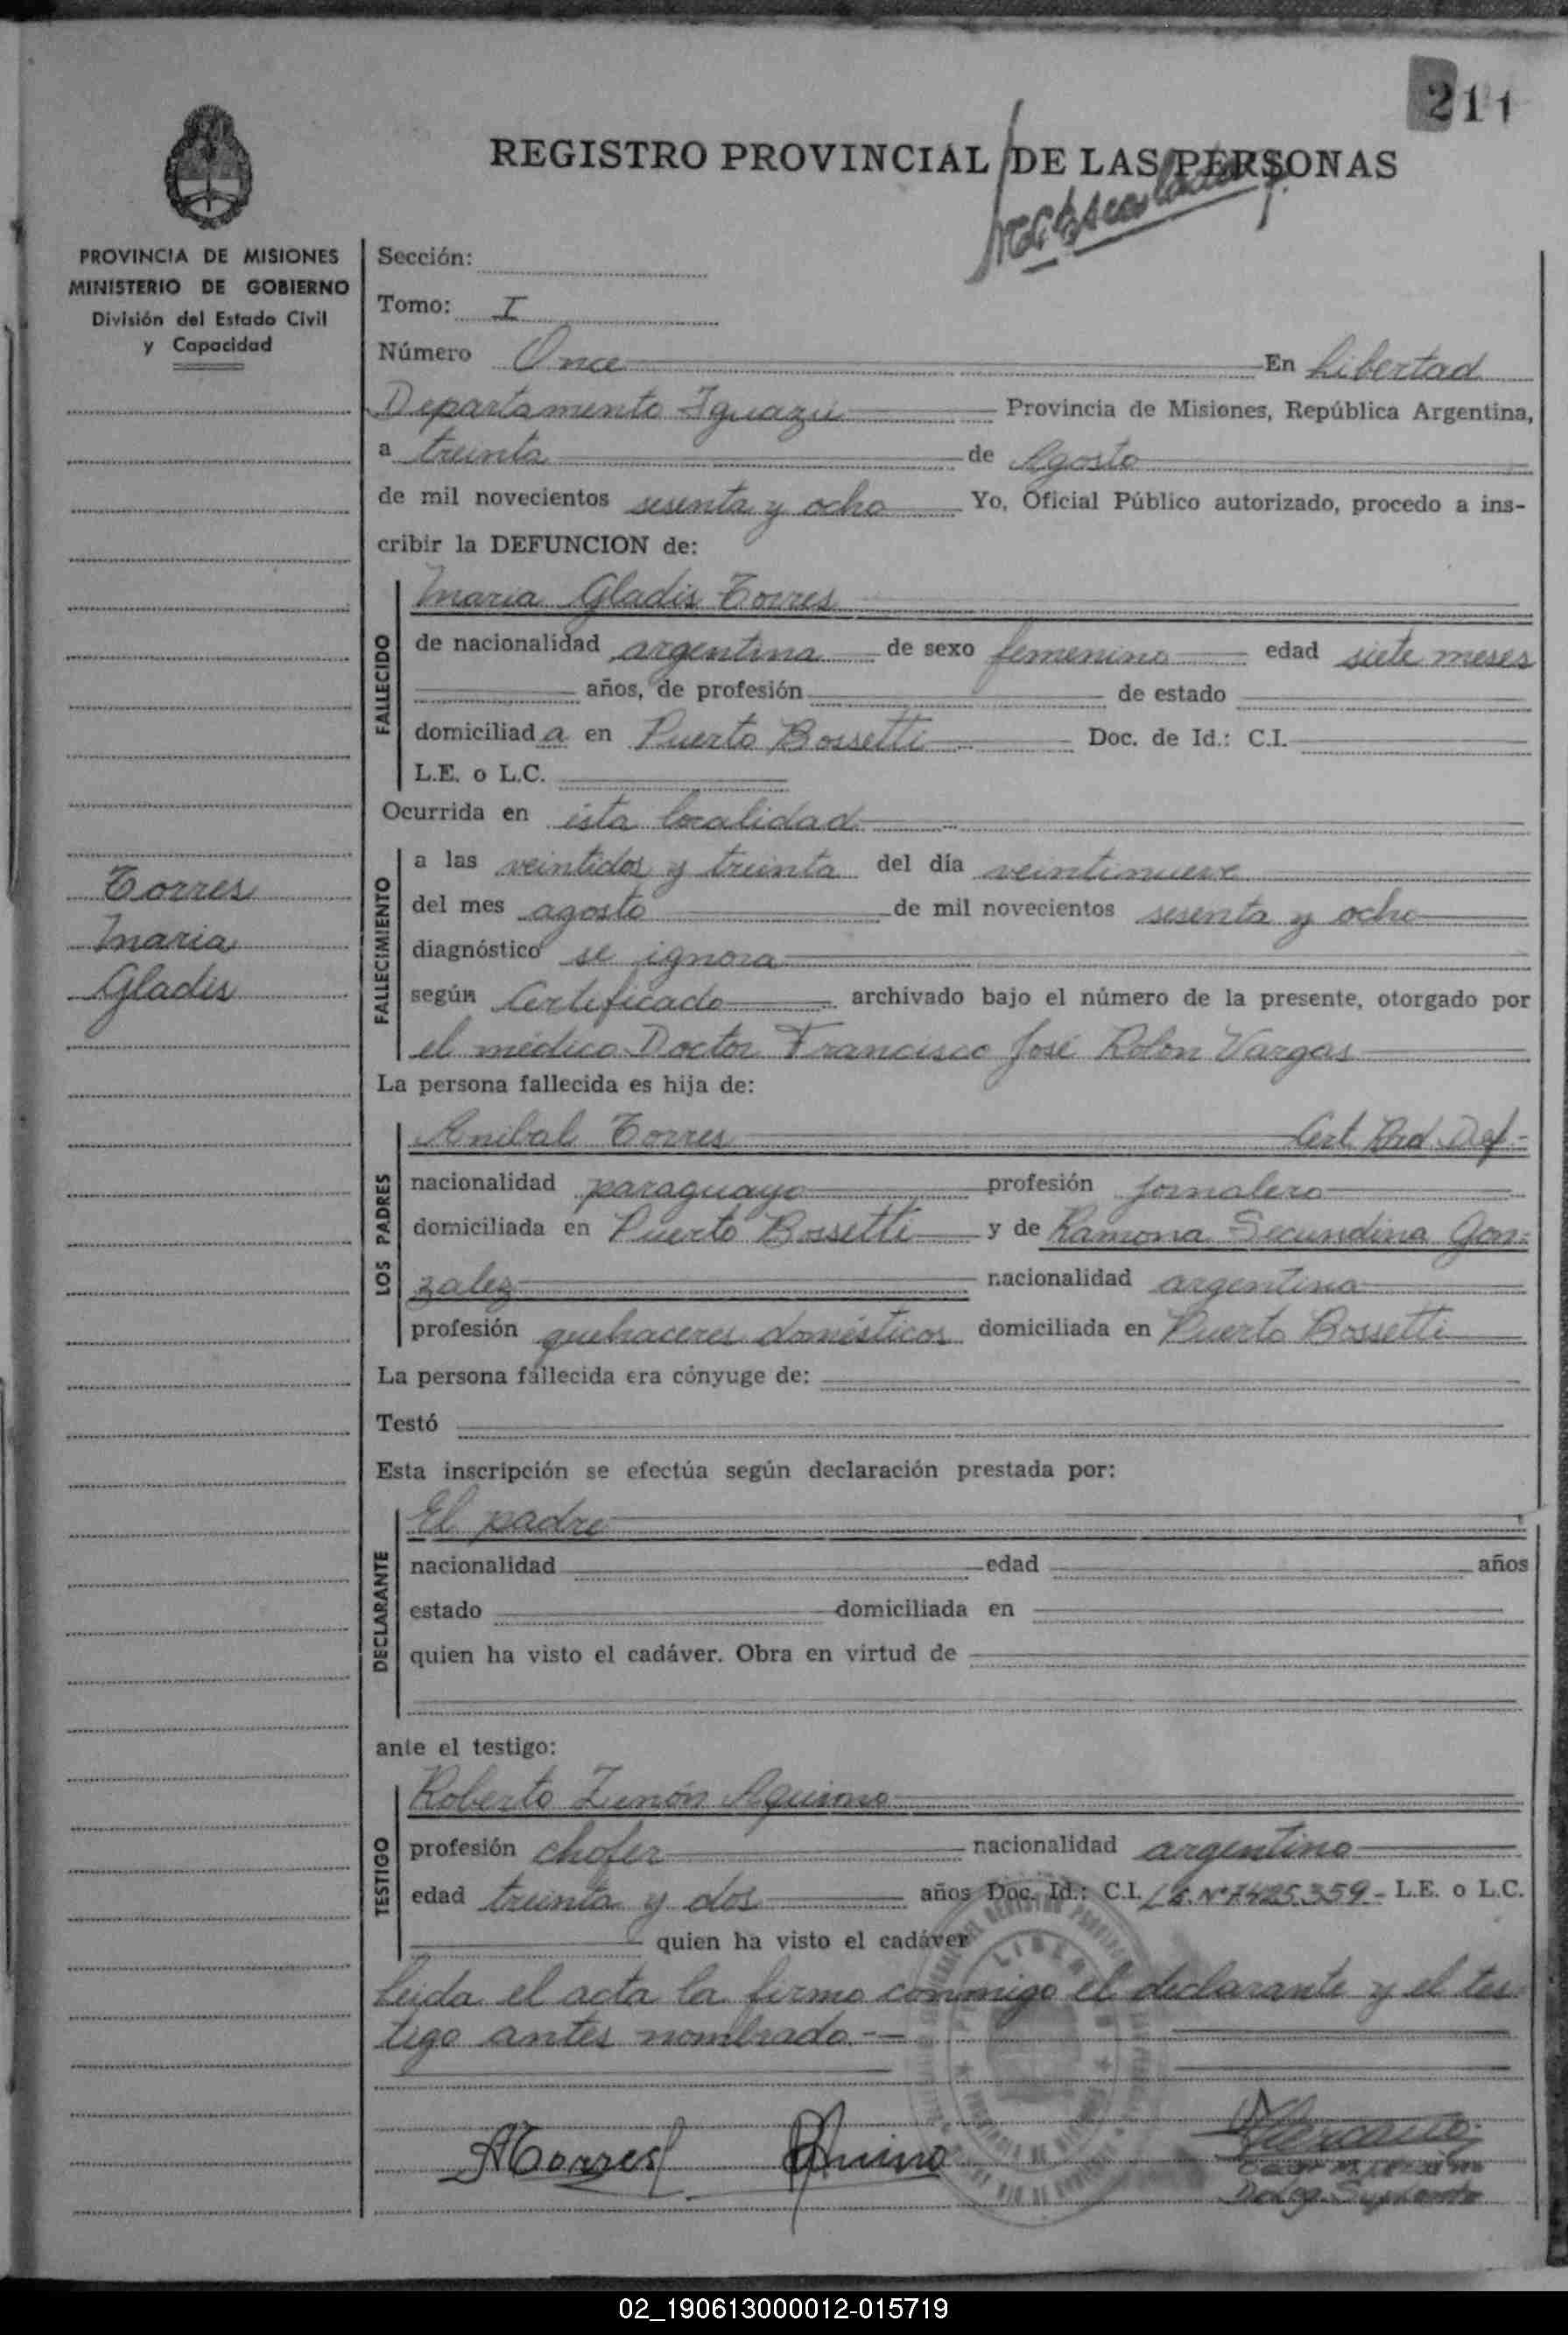 211
REGISTRO PROVINCIAL DE LAS PERSONAS
PROVINCIA DE MISIONES
MINISTERIO DE GOBIERNO
División del Estado Civil
y Capacidad
Sección:
Tomo: I
Número Once En Libertad
Departamento Iguazú Provincia de Misiones, República Argentina,
a treinta de Agosto
de mil novecientos sesenta y ocho Yo, Oficial Público autorizado, procedo a ins-
cribir la DEFUNCION de:
FALLECIDO
Maria Gladis Torres
de nacionalidad argentina de sexo femenino edad siete meses
años, de profesión de estado
domiciliad a en Puerto Bossetti Doc. de Id.: C.I.
L.E. o L.C.
Ocurrida en ésta localidad
FALLECIMIENTO
a las veintidos y treinta del día veintinueve
del mes agosto de mil novecientos sesenta y ocho
diagnóstico se ignora
según Certificado archivado bajo el número de la presente, otorgado por
el médico Doctor Francisco José Rolon Vargas
Torres
Maria
Gladis
La persona fallecida es hija de:
LOS PADRES
Anibal Torres Cert. Rad. Def.-
nacionalidad paraguayo profesión jornalero
domiciliada en Puerto Bossetti y de Ramona Secundina Gon-
zalez nacionalidad argentina
profesión quehaceres domésticos domiciliada en Puerto Bossetti
La persona fallecida era cónyuge de:
Testó
Esta inscripción se efectúa según declaración prestada por:
DECLARANTE
El padre
nacionalidad edad años
estado domiciliada en
quien ha visto el cadáver. Obra en virtud de
ante el testigo:
TESTIGO
Roberto Zenón Aquino
profesión chofer nacionalidad argentino
edad treinta y dos años Doc. Id.: C.I. L.E. Nº 7.425.359- L.E. o L.C.
quien ha visto el cadáver
Leida el acta la firma conmigo el declarante y el tes-
tigo antes nombrado.-
ATorres Aquino
Deleg. Suplente
02_190613000012-015719